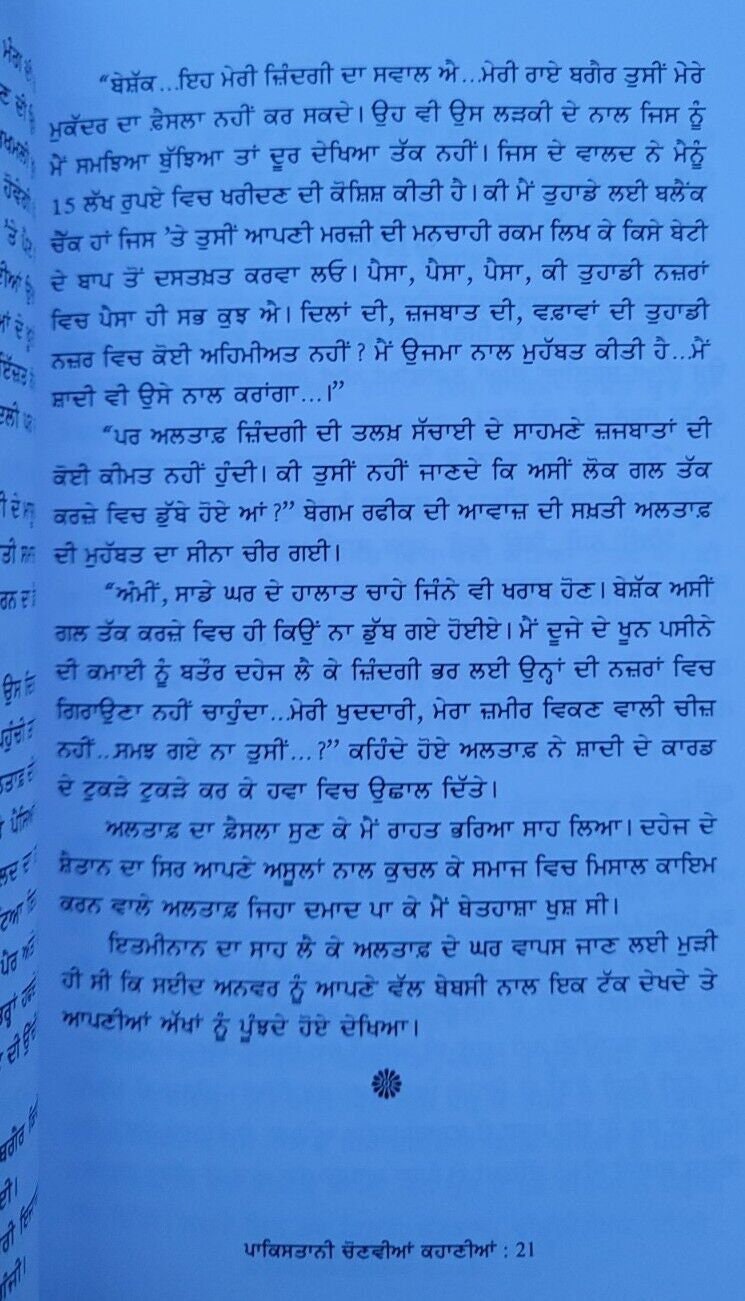 “ਬੇਸ਼ੱਕ...ਇਹ ਮੇਰੀ ਜ਼ਿੰਦਗੀ ਦਾ ਸਵਾਲ ਐ...ਮੇਰੀ ਰਾਏ ਬਗੈਰ ਤੁਸੀਂ ਮੇਰੇ
ਮੁਕੱਦਰ ਦਾ ਫ਼ੈਸਲਾ ਨਹੀਂ ਕਰ ਸਕਦੇ। ਉਹ ਵੀ ਉਸ ਲੜਕੀ ਦੇ ਨਾਲ ਜਿਸ ਨੂੰ
ਮੈਂ ਸਮਝਿਆ ਬੁੱਝਿਆ ਤਾਂ ਦੂਰ ਦੇਖਿਆ ਤੱਕ ਨਹੀਂ। ਜਿਸ ਦੇ ਵਾਲਦ ਨੇ ਮੈਨੂੰ
15 ਲੱਖ ਰੁਪਏ ਵਿਚ ਖਰੀਦਣ ਦੀ ਕੋਸ਼ਿਸ਼ ਕੀਤੀ ਹੈ। ਕੀ ਮੈਂ ਤੁਹਾਡੇ ਲਈ ਬਲੈਂਕ
ਚੈੱਕ ਹਾਂ ਜਿਸ ’ਤੇ ਤੁਸੀਂ ਆਪਣੀ ਮਰਜ਼ੀ ਦੀ ਮਨਚਾਹੀ ਰਕਮ ਲਿਖ ਕੇ ਕਿਸੇ ਬੇਟੀ
ਦੇ ਬਾਪ ਤੋਂ ਦਸਤਖ਼ਤ ਕਰਵਾ ਲਓ। ਪੈਸਾ, ਪੈਸਾ, ਪੈਸਾ, ਕੀ ਤੁਹਾਡੀ ਨਜ਼ਰਾਂ
ਵਿਚ ਪੈਸਾ ਹੀ ਸਭ ਕੁਝ ਐ। ਦਿਲਾਂ ਦੀ, ਜ਼ਜਬਾਤ ਦੀ, ਵਫ਼ਾਵਾਂ ਦੀ ਤੁਹਾਡੀ
ਨਜ਼ਰ ਵਿਚ ਕੋਈ ਅਹਿਮੀਅਤ ਨਹੀਂ ? ਮੈਂ ਉਜਮਾ ਨਾਲ ਮੁਹੱਬਤ ਕੀਤੀ ਹੈ...ਮੈਂ
ਸ਼ਾਦੀ ਵੀ ਉਸੇ ਨਾਲ ਕਰਾਂਗਾ...।”
“ਪਰ ਅਲਤਾਫ਼ ਜ਼ਿੰਦਗੀ ਦੀ ਤਲਖ਼ ਸੱਚਾਈ ਦੇ ਸਾਹਮਣੇ ਜ਼ਜਬਾਤਾਂ ਦੀ
ਕੋਈ ਕੀਮਤ ਨਹੀਂ ਹੁੰਦੀ। ਕੀ ਤੁਸੀਂ ਨਹੀਂ ਜਾਣਦੇ ਕਿ ਅਸੀਂ ਲੋਕ ਗਲ ਤੱਕ
ਕਰਜ਼ੇ ਵਿਚ ਡੁੱਬੇ ਹੋਏ ਆਂ ?” ਬੇਗਮ ਰਫੀਕ ਦੀ ਆਵਾਜ਼ ਦੀ ਸਖ਼ਤੀ ਅਲਤਾਫ਼
ਦੀ ਮੁਹੱਬਤ ਦਾ ਸੀਨਾ ਚੀਰ ਗਈ।
“ਅੰਮੀਂ, ਸਾਡੇ ਘਰ ਦੇ ਹਾਲਾਤ ਚਾਹੇ ਜਿੰਨੇ ਵੀ ਖਰਾਬ ਹੋਣ। ਬੇਸ਼ੱਕ ਅਸੀਂ
ਗਲ ਤੱਕ ਕਰਜ਼ੇ ਵਿਚ ਹੀ ਕਿਉਂ ਨਾ ਡੁੱਬ ਗਏ ਹੋਈਏ। ਮੈਂ ਦੂਜੇ ਦੇ ਖੂਨ ਪਸੀਨੇ
ਦੀ ਕਮਾਈ ਨੂੰ ਬਤੌਰ ਦਹੇਜ ਲੈ ਕੇ ਜ਼ਿੰਦਗੀ ਭਰ ਲਈ ਉਨ੍ਹਾਂ ਦੀ ਨਜ਼ਰਾਂ ਵਿਚ
ਗਿਰਾਉਣਾ ਨਹੀਂ ਚਾਹੁੰਦਾ...ਮੇਰੀ ਖੁਦਦਾਰੀ, ਮੇਰਾ ਜ਼ਮੀਰ ਵਿਕਣ ਵਾਲੀ ਚੀਜ਼
ਨਹੀਂ...ਸਮਝ ਗਏ ਨਾ ਤੁਸੀਂ...?” ਕਹਿੰਦੇ ਹੋਏ ਅਲਤਾਫ਼ ਨੇ ਸ਼ਾਦੀ ਦੇ ਕਾਰਡ
ਦੇ ਟੁਕੜੇ ਟੁਕੜੇ ਕਰ ਕੇ ਹਵਾ ਵਿਚ ਉਛਾਲ ਦਿੱਤੇ।
ਅਲਤਾਫ਼ ਦਾ ਫ਼ੈਸਲਾ ਸੁਣ ਕੇ ਮੈਂ ਰਾਹਤ ਭਰਿਆ ਸਾਹ ਲਿਆ। ਦਹੇਜ ਦੇ
ਸ਼ੈਤਾਨ ਦਾ ਸਿਰ ਆਪਣੇ ਅਸੂਲਾਂ ਨਾਲ ਕੁਚਲ ਕੇ ਸਮਾਜ ਵਿਚ ਮਿਸਾਲ ਕਾਇਮ
ਕਰਨ ਵਾਲੇ ਅਲਤਾਫ਼ ਜਿਹਾ ਦਮਾਦ ਪਾ ਕੇ ਮੈਂ ਬੇਤਹਾਸ਼ਾ ਖੁਸ਼ ਸੀ।
ਇਤਮੀਨਾਨ ਦਾ ਸਾਹ ਲੈ ਕੇ ਅਲਤਾਫ਼ ਦੇ ਘਰ ਵਾਪਸ ਜਾਣ ਲਈ ਮੁੜੀ
ਹੀ ਸੀ ਕਿ ਸਈਦ ਅਨਵਰ ਨੂੰ ਆਪਣੇ ਵੱਲ ਬੇਬਸੀ ਨਾਲ ਇਕ ਟੱਕ ਦੇਖਦੇ ਤੇ
ਆਪਣੀਆਂ ਅੱਖਾਂ ਨੂੰ ਪੂੰਝਦੇ ਹੋਏ ਦੇਖਿਆ।
ਪਾਕਿਸਤਾਨੀ ਚੋਣਵੀਆਂ ਕਹਾਣੀਆਂ : 21